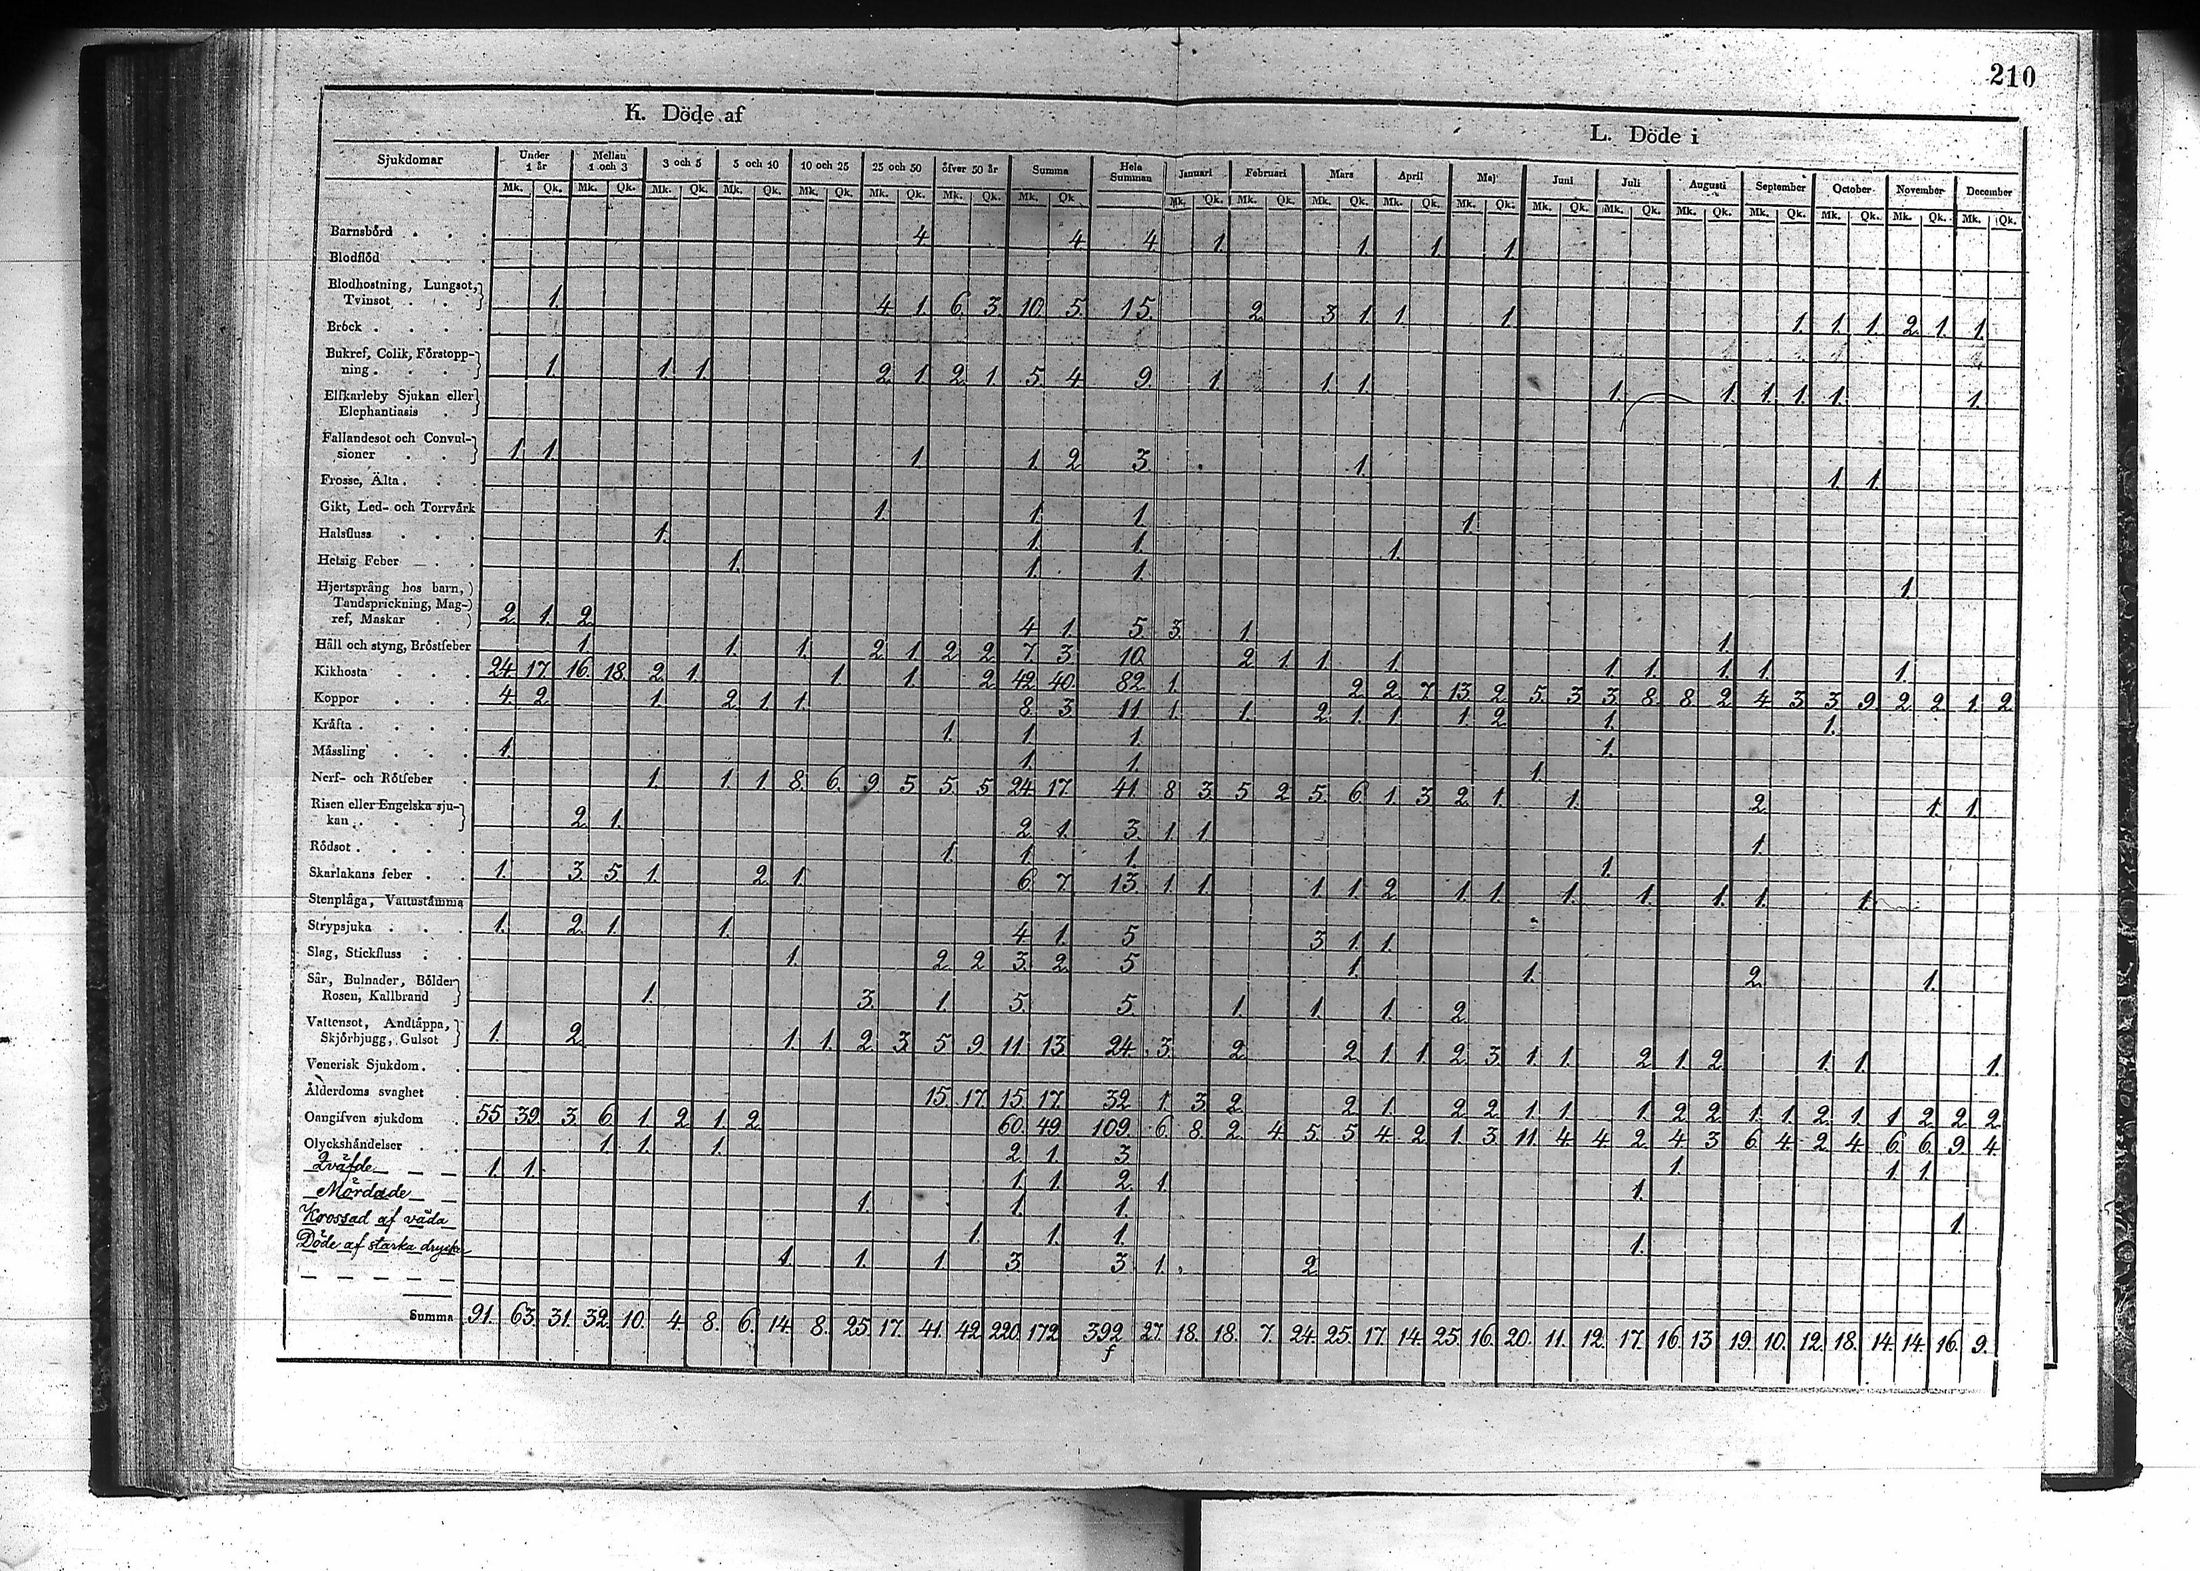 210
K. Döde af
L. Döde i
Sjukdomar Under 1 år Mellan 1 och 3 3 och 5 5 och 10 10 och 25 25 och 50 öfver 50 år Summa Hela Summan Januari Februari Mars April Maj Juni Juli Augusti September October November December
Mk. Qk. Mk. Qk. Mk. Qk. Mk. Qk. Mk. Qk. Mk. Qk. Mk. Qk. Mk. Qk Mk. Qk. Mk. Qk. Mk. Qk. Mk. Qk. Mk. Qk. Mk. Qk. Mk. Qk. Mk. Qk. Mk. Qk. Mk. Qk. Mk. Qk. Mk. Qk.
Barnsbörd . . . 4 4 4 1. 1. 1. 1.
Blodflöd . .
Blodhostning, Lungsot,
Tvinsot . . . 1. 4. 1. 6. 3. 10. 5. 15. 2. 3. 1. 1. 1. 1. 1. 1. 2. 1. 1.
Bröck . . . .
Bukref, Colik, Förstopp-
ning . . . . 1. 1. 1. 2. 1. 2. 1. 5. 4. 9. 1. 1. 1. 1. 1. 1. 1. 1. 1.
Elfkarleby Sjukan eller
Elephantiasis .
Fallandesot och Convul-
sioner . . . 1. 1. 1. 1. 2. 3. 1. 1. 1.
Frosse, Älta . . .
Gikt, Led- och Torrvärk 1. 1. 1. 1.
Halsfluss . . . 1. 1. 1. 1.
Hetsig Feber . . 1. 1. 1. 1.
Hjertsprång hos barn,
Tandsprickning, Mag-
ref, Maskar . . 2. 1. 2. 4. 1. 5. 3. 1. 1.
Håll och styng, Bröstfeber 1. 1. 1. 2. 1. 2. 2. 7. 3. 10. 2. 1. 1. 1. 1. 1. 1. 1. 1.
Kikhosta . . . 24. 17. 16. 18. 2. 1. 1. 1. 2. 42. 40. 82. 1. 2. 2. 7. 13. 2. 5. 3. 3. 8. 8. 2. 4. 3. 3. 9. 2. 2. 1. 2.
Koppor . . . 4. 2. 1. 2. 1. 1. 8. 3. 11. 1. 1. 2. 1. 1. 1. 2. 1. 1.
Kräfta . . . . 1. 1. 1. 1.
Mässling . . . 1. 1. 1. 1.
Nerf- och Rötfeber . 1. 1. 1. 8. 6. 9. 5. 5. 5. 24. 17. 41. 8. 3. 5. 2. 5. 6. 1. 3. 2. 1. 1. 2. 1. 1.
Risen eller Engelska sju-
kan . . . . 2. 1. 2. 1. 3. 1. 1. 1.
Rödsot . . . . 1. 1. 1. 1.
Skarlakans feber . . 1. 3. 5. 1. 2. 1. 6. 7. 13. 1. 1. 1. 1. 2. 1. 1. 1. 1. 1. 1. 1.
Stenplåga, Vattustämma
Strypsjuka . . . 1. 2. 1. 1. 4. 1. 5 3. 1. 1.
Slag, Stickfluss . . 1. 2. 2. 3. 2. 5 1. 1. 2. 1.
Sår, Bulnader, Bölder
Rosen, Kallbrand 1. 3. 1. 5. 5 1. 1. 1. 2.
Vattensot, Andtäppa,
Skjörbjugg, Gulsot 1. 2. 1. 1. 2. 3. 5. 9. 11. 13. 24. 3. 2. 2. 1. 1. 2. 3. 1. 1. 2. 1. 2. 1. 1. 1.
Venerisk Sjukdom . .
Ålderdoms svaghet . 15. 17. 15. 17. 32 1. 3. 2. 2. 1. 2. 2. 1. 1. 1. 2. 2. 1. 1. 2. 1. 1. 2. 2. 2.
Oangifven sjukdom . 55 39. 3. 6. 1. 2. 1. 2. 60. 49. 109. 6. 8. 2. 4. 5. 5. 4. 2. 1. 3. 11. 4. 4. 2. 4. 3. 6. 4. 2. 4. 6. 6. 9. 4.
Olyckshändelser . . 1. 1. 1. 2. 1. 3. 1. 1. 1.
Qväfde 1. 1. 1. 1. 2. 1. 1.
Mördade 1. 1. 1. 1.
Krossad af våda 1. 1. 1. 1.
Döde af starka drycker 1. 1. 1. 3. 3. 1. 2
Summa 91. 63. 31. 32. 10. 4. 8. 6. 14. 8. 25. 17. 41. 42 220. 172 392 27. 18. 18. 7. 24. 25. 17. 14. 25. 16. 20. 11. 12. 17. 16. 13 19. 10. 12. 18. 14. 14. 16. 9.